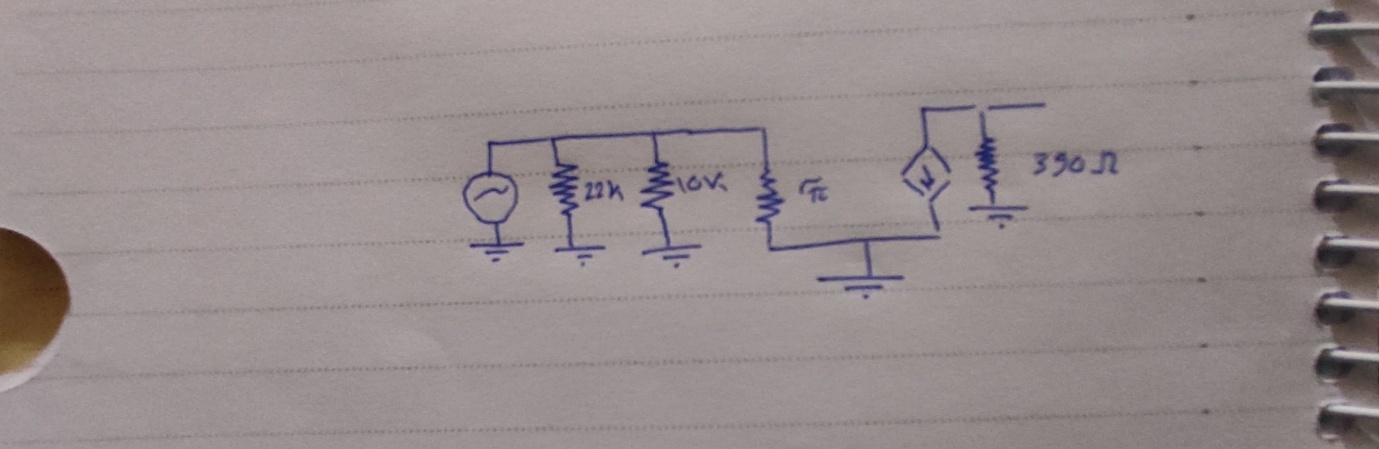 22k 10k rπ 390Ω